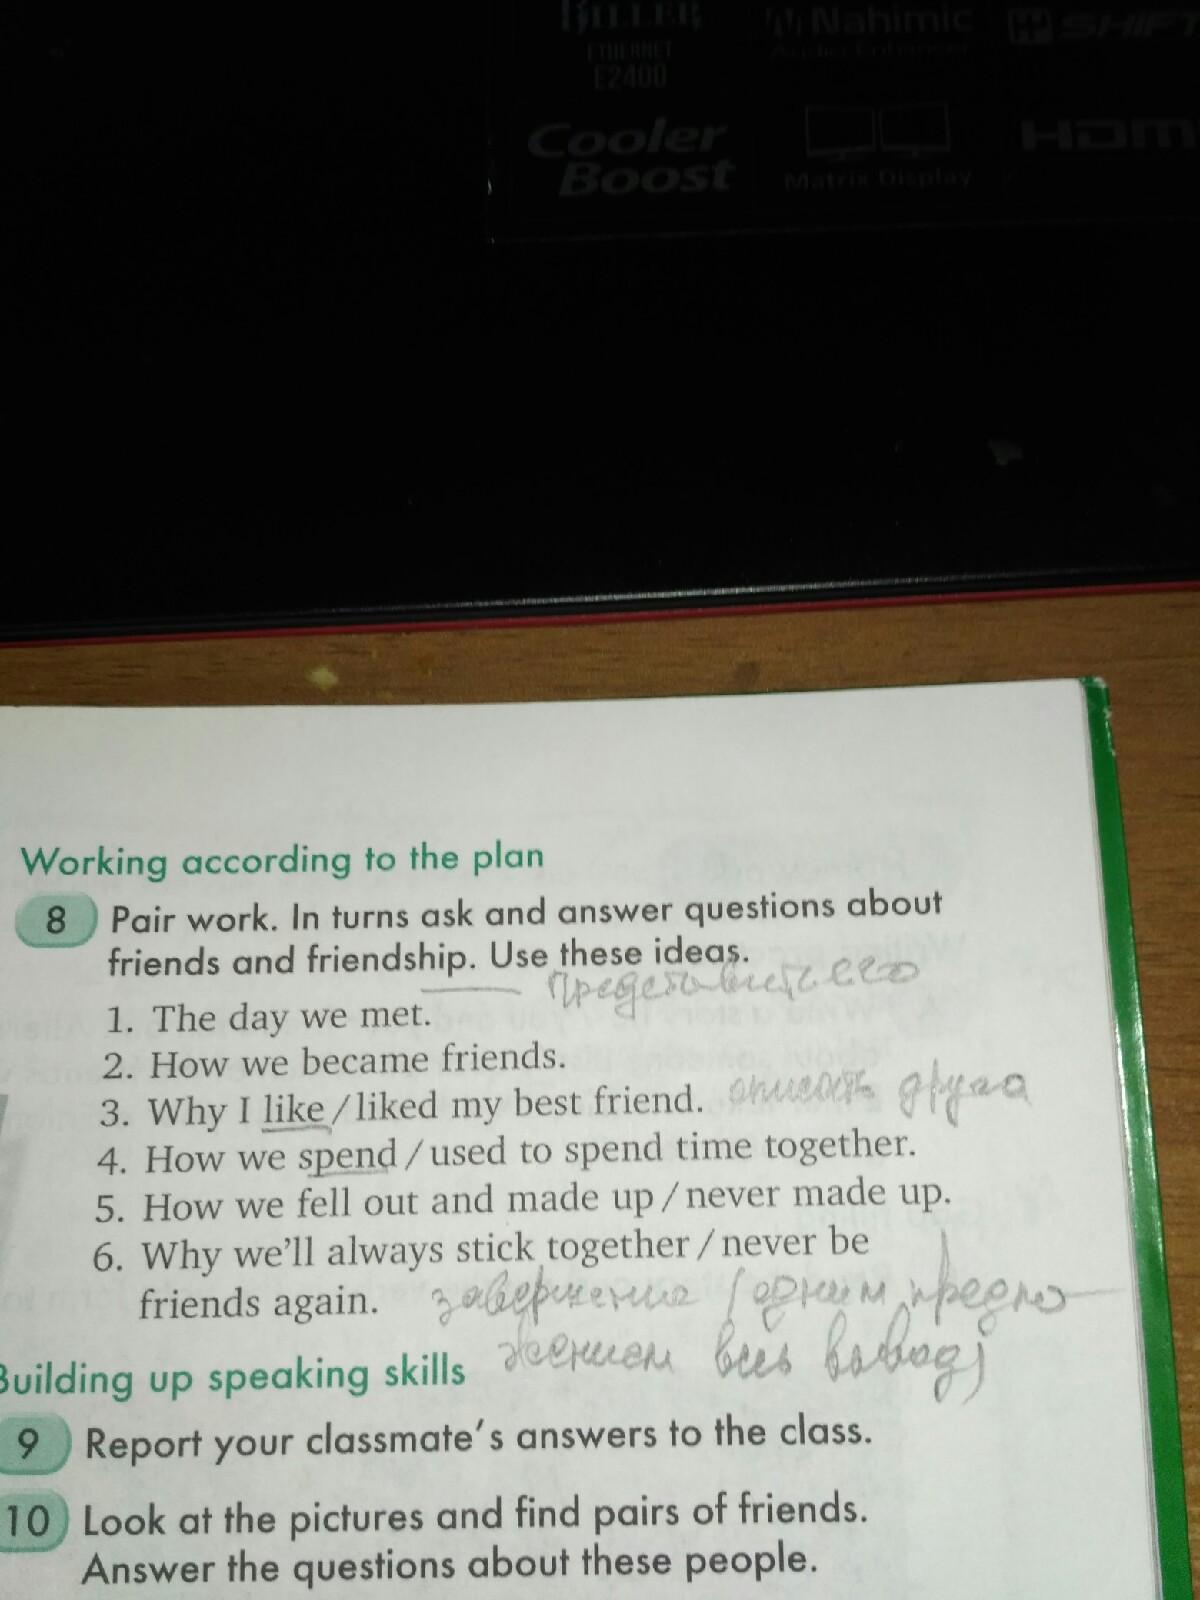 KILLER
ETHERNET
E2400
Nahimic
Audio Enhancer
SHIFT
Cooler
Boost
Matrix Display
HDMI
Working according to the plan
8 Pair work. In turns ask and answer questions about
friends and friendship. Use these ideas.
представить его
1. The day we met.
2. How we became friends.
3. Why I like/liked my best friend. описать друга
4. How we spend/used to spend time together.
5. How we fell out and made up/never made up.
6. Why we'll always stick together/never be
friends again. завершение (одним предло-
жением весь вывод)
Building up speaking skills
9 Report your classmate's answers to the class.
10 Look at the pictures and find pairs of friends.
Answer the questions about these people.